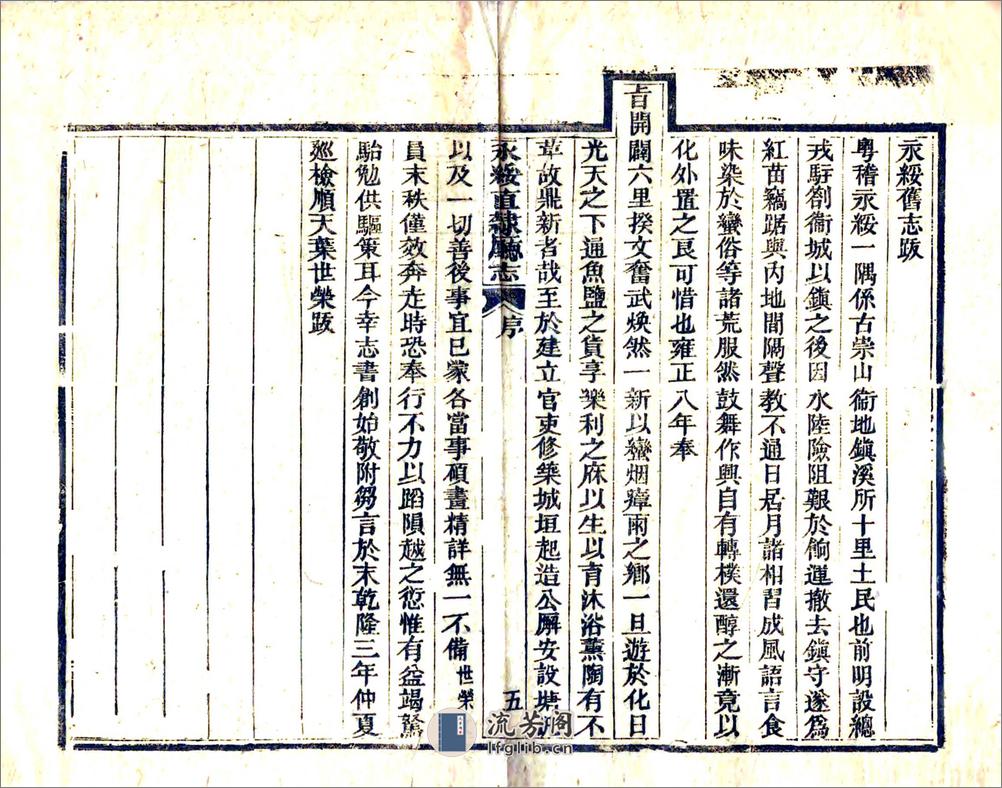 永綏舊志跋
粵稽永綏一隅係古崇山衞地鎮溪所十里土民也前明設總
戎駐劄衞城以鎮之後因水陸險阻艱於餉運撤去鎮守遂爲
紅苗竊踞與內地間隔聲教不通日居月諸相習成風語言食
味染於蠻俗等諸荒服然鼓舞作興自有轉樸還醇之漸竟以
化外置之良可惜也雍正八年奉
旨開闢六里揆文奮武煥然一新以蠻烟瘴雨之鄉一旦遊於化日
光天之下通魚鹽之貨享樂利之庥以生以育沐浴薰陶有不
革故鼎新者哉至於建立官吏修築城垣起造公廨安設塘汛
永綏直隸廳志 序 五
以及一切善後事宜已蒙各當事碩畫精詳無一不備世榮
員末秩僅效奔走時恐奉行不力以蹈隕越之愆惟有益竭駑
駘勉供驅策耳今幸志書創始敬附芻言於末乾隆三年仲夏
廵檢順天葉世榮跋
流芳阁
lfglib.cn